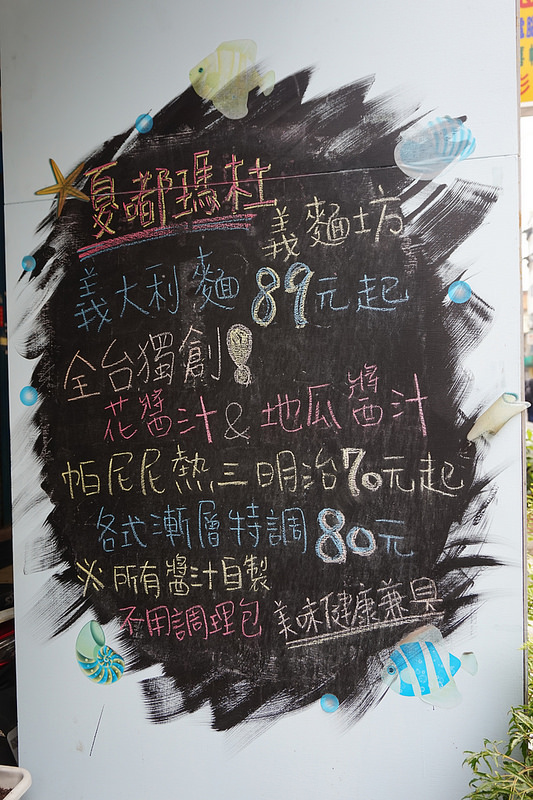 夏嘟瑪杜
義麵坊
義大利麵89元起
全台獨創!
花醬汁&地瓜醬汁
帕尼尼熱三明治70元起
各式漸層特調80元
※所有醬汁自製
不用調理包 美味健康兼具